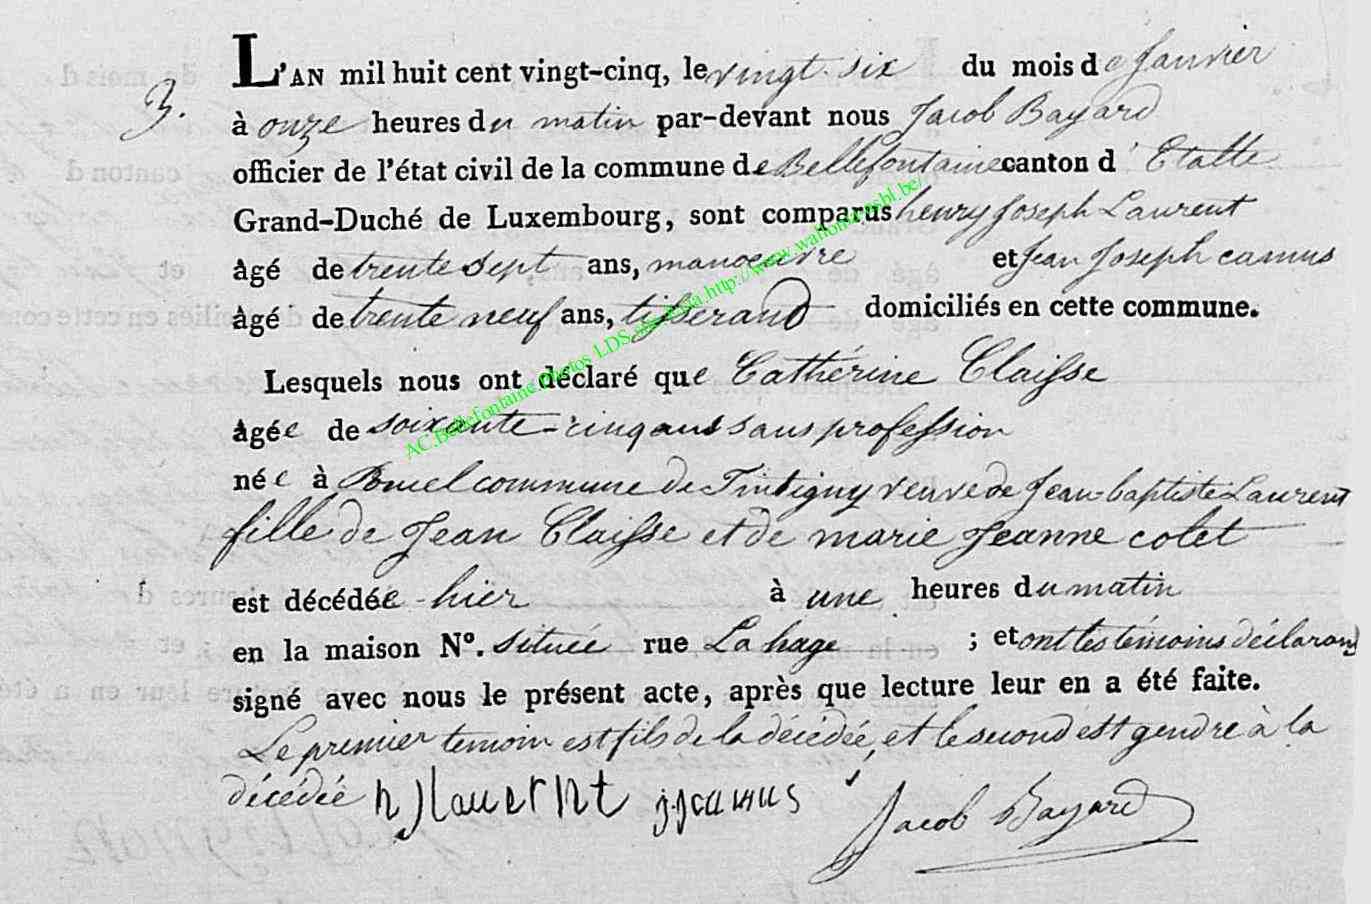 3.
L'AN mil huit cent vingt-cinq, le vingt-six du mois de Janvier
à onze heures du matin par-devant nous Jacob Bayard
officier de l'état civil de la commune de Bellefontaine canton d'Etalle
Grand-Duché de Luxembourg, sont comparus henry Joseph Laurent
âgé de trente sept ans, manoeuvre et Jean Joseph camus
âgé de trente neuf ans, tisserand domiciliés en cette commune.
Lesquels nous ont déclaré que Catherine Claisse
âgée de soixante-cinq ans sans profession
née à commune de Tintigny veuve de Jean-baptiste Laurent
fille de Jean Claisse et de marie Jeanne colet
est décédée hier à une heures du matin
en la maison N°. située rue La hage ; et ont les témoins déclarans
signé avec nous le présent acte, après que lecture leur en a été faite.
Le premier temoin est fils de la décédée, et le second est gendre à la
décédée h J lauernt j.j camus Jacob Bayard
AC.Bellefontaine photos LDS http://www.wallonia.asbl.be/